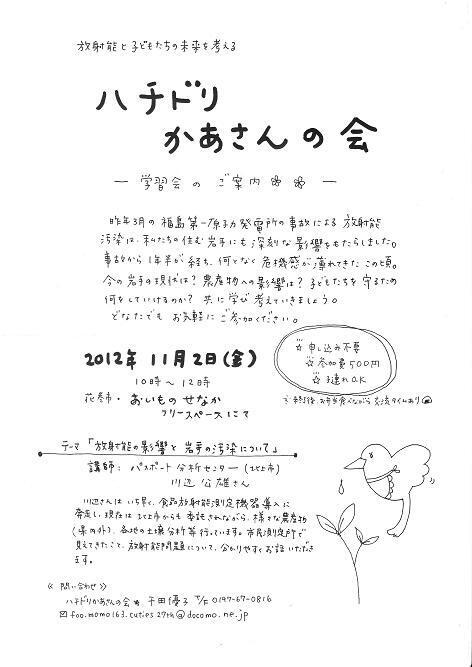 放射能と子どもたちの未来を考える
ハチドリ
かあさんの会
― 学習会のご案内 ―
昨年3月の福島第一原子力発電所の事故による放射能
汚染は、私たちの住む岩手にも深刻な影響をもたらしました。
事故から1年半が経ち、何となく危機感が薄れてきたこの頃。
今の岩手の現状は?農産物への影響は?子どもたちを守るため
何をしていけるのか? 共に学び考えていきましょう。
どなたでも お気軽に ご参加ください。
2012年 11月2日(金)
10時〜12時
花巻市・おいものせなか
フリースペースにて
☆申し込み不要
☆参加費500円
☆子連れOK
終了後、お弁当食べながら交流タイムあり
テーマ「放射能の影響と岩手の汚染について」
講師: パスポート分析センター(北上市)
川辺公雄さん
川辺さんは いち早く、食品放射能測定機器導入に
奔走し、現在は 北上市からも委託されながら、様々な農産物
(県内外)、各地の土壌分析等行っています。市民測定所で
見えてきたこと、放射能問題について、分かりやすくお話いただき
ます。
《問い合わせ》
ハチドリかあさんの会 千田優子 T/F 0197-67-0816
✉foo.momo163.cuties27th@docomo.ne.jp